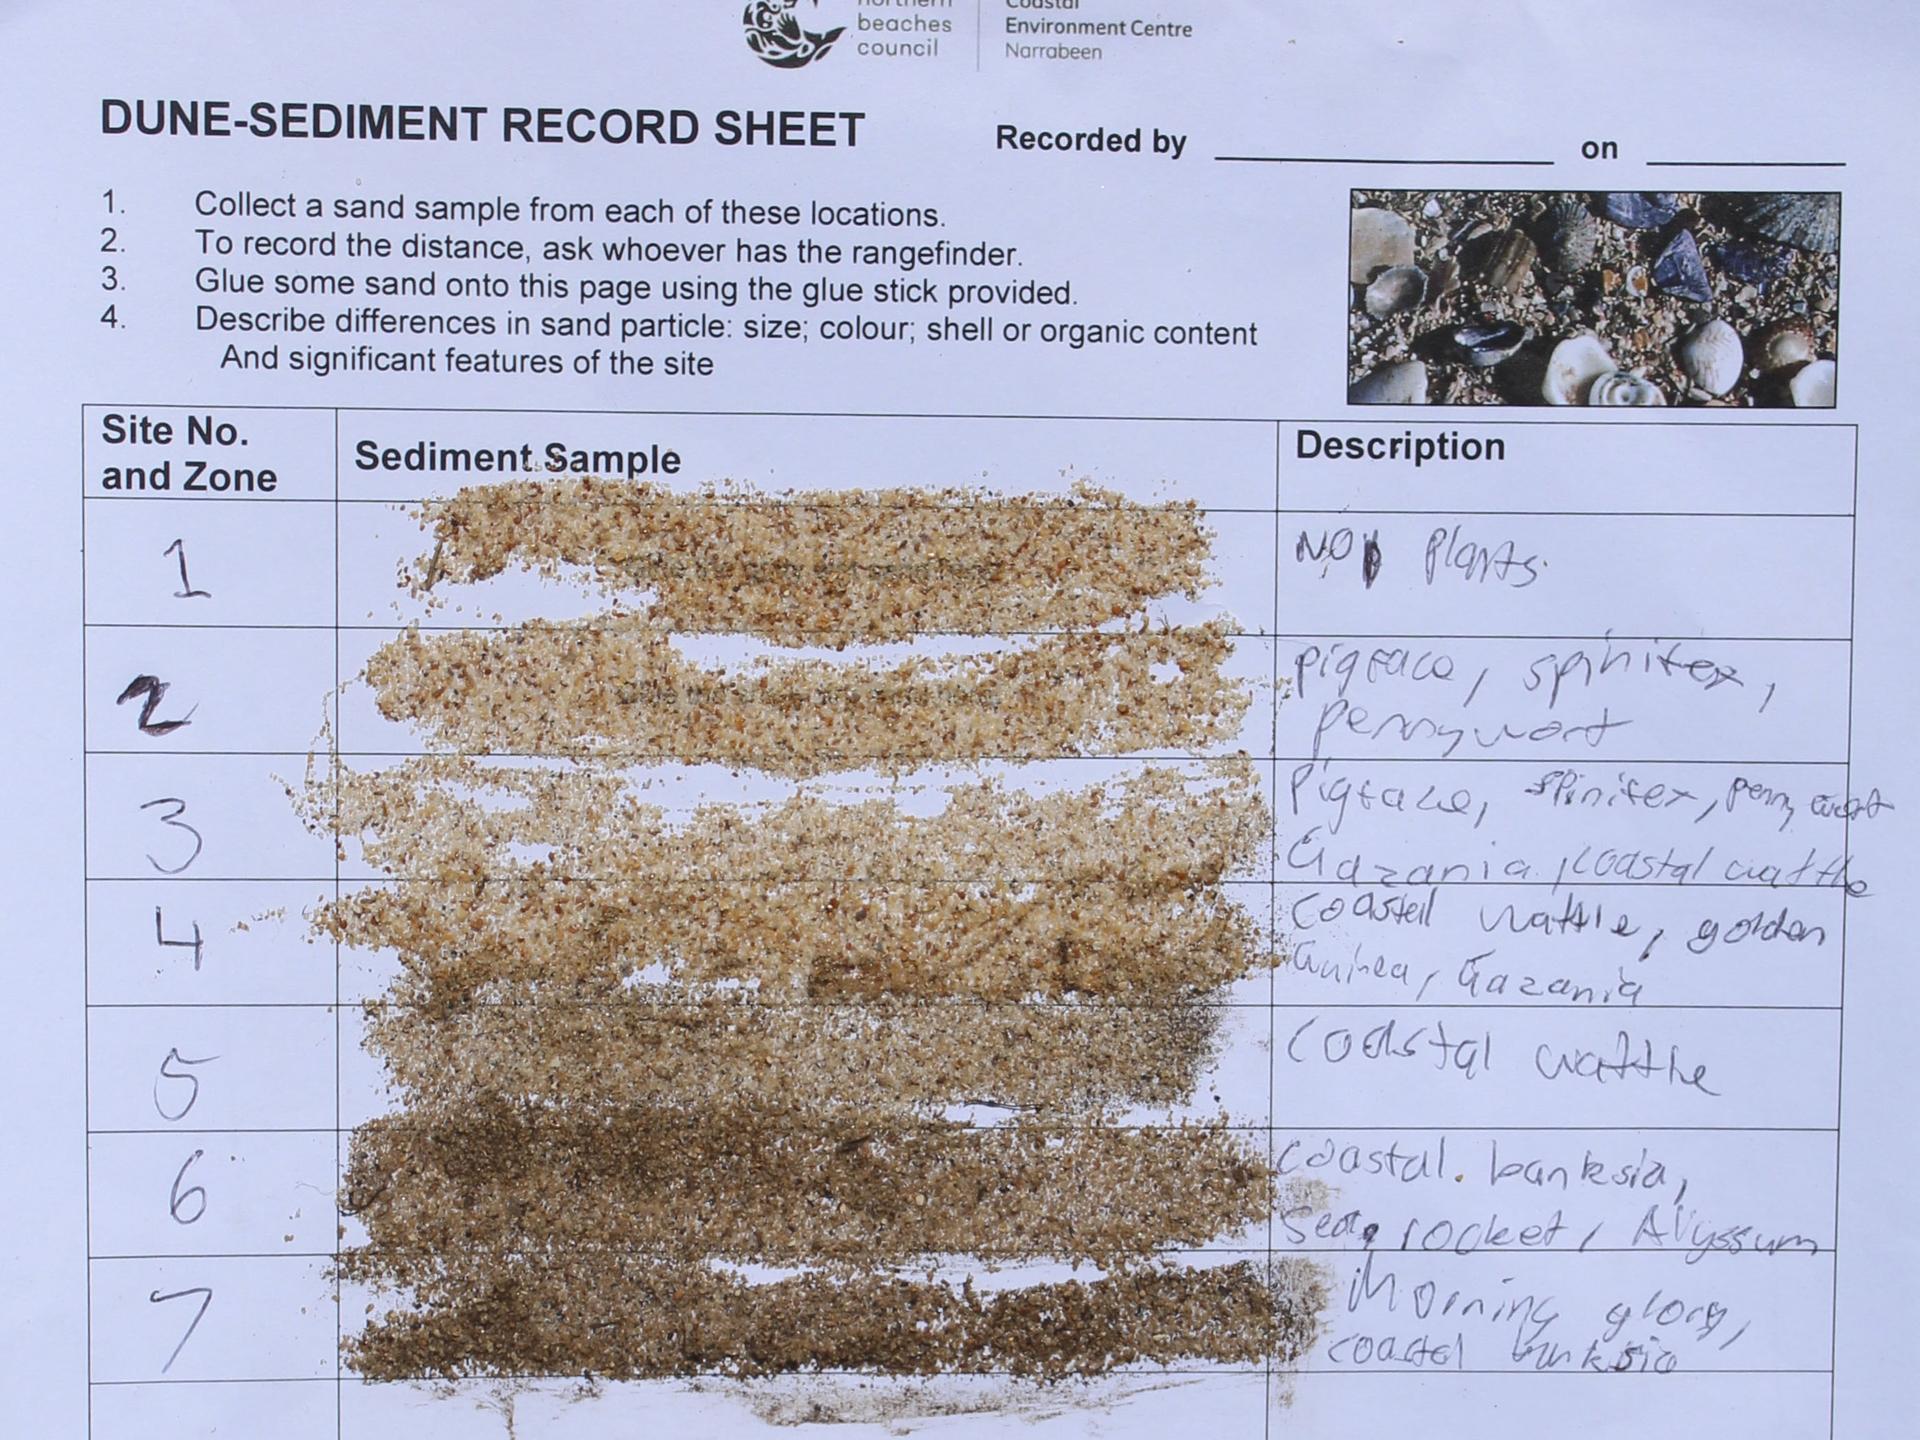 northern
beaches
council
Coastal
Environment Centre
Narrabeen
DUNE-SEDIMENT RECORD SHEET
Recorded by on
1. Collect a sand sample from each of these locations.
2. To record the distance, ask whoever has the rangefinder.
3. Glue some sand onto this page using the glue stick provided.
4. Describe differences in sand particle: size; colour; shell or organic content
And significant features of the site
Site No.
and Zone
Sediment Sample
Description
1
NO Plants.
2
pigface, spinifex,
pennywort
3
Pigface, spinifex, penny wort
Gazania, coastal watthe
4
coastal wattle, golden
Guinea, Gazania
5
coastal watthe
6
coastal. banksia,
Sea, rocket, Alyssum
7
Morning glory,
coastal banksia